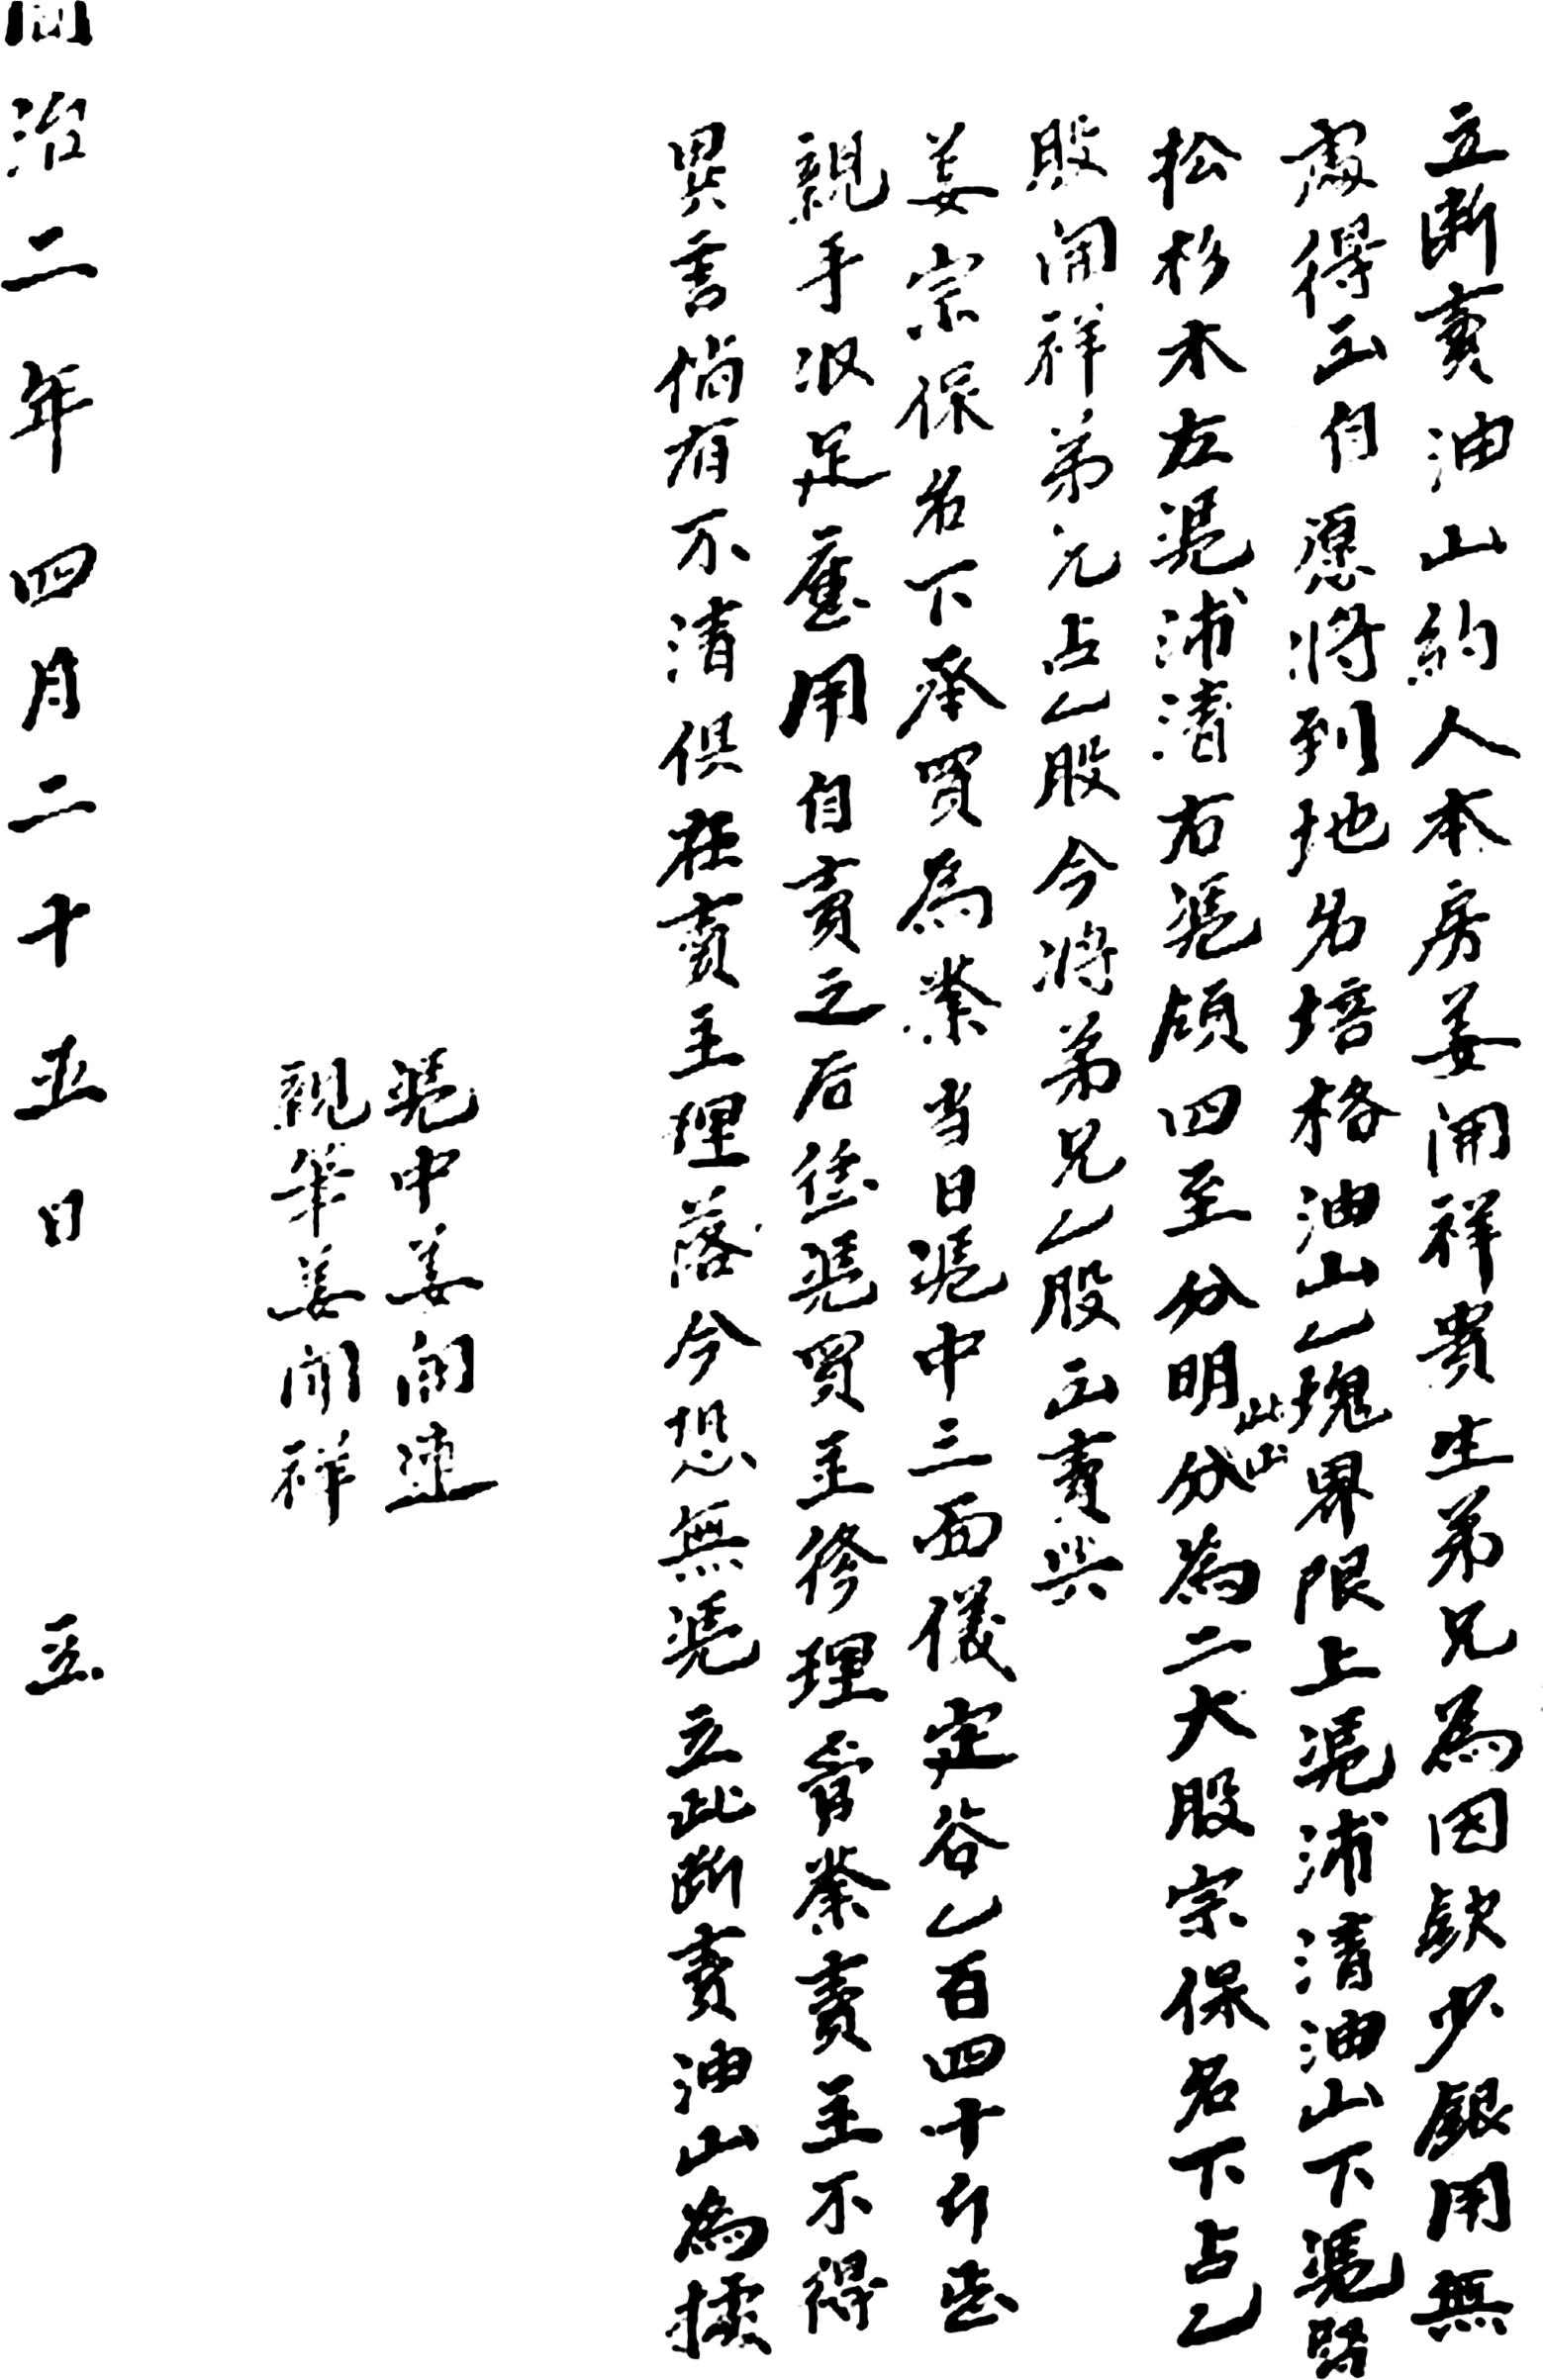 立断賣油山約人本房姜開祥貴生弟兄為因缺少銀用無
處得出自愿將到地名培格油山乙塊界限上凴浦清油山下凴路
松杉木左凴浦清右凴領四至分明此山分為二大股宗保名下占乙
股開祥弟兄占乙股今將弟兄乙股出賣與
姜宗保名下承買為業当日凴中三面儀定谷乙百四十斤
親手收足應用自賣之后任凴買主修理管業賣主不得
異言倘有不清俱在賣主理落今恐無凴立此断賣油山為據
凴中姜開連
親筆姜開祥
同治二年四月二十五日 立